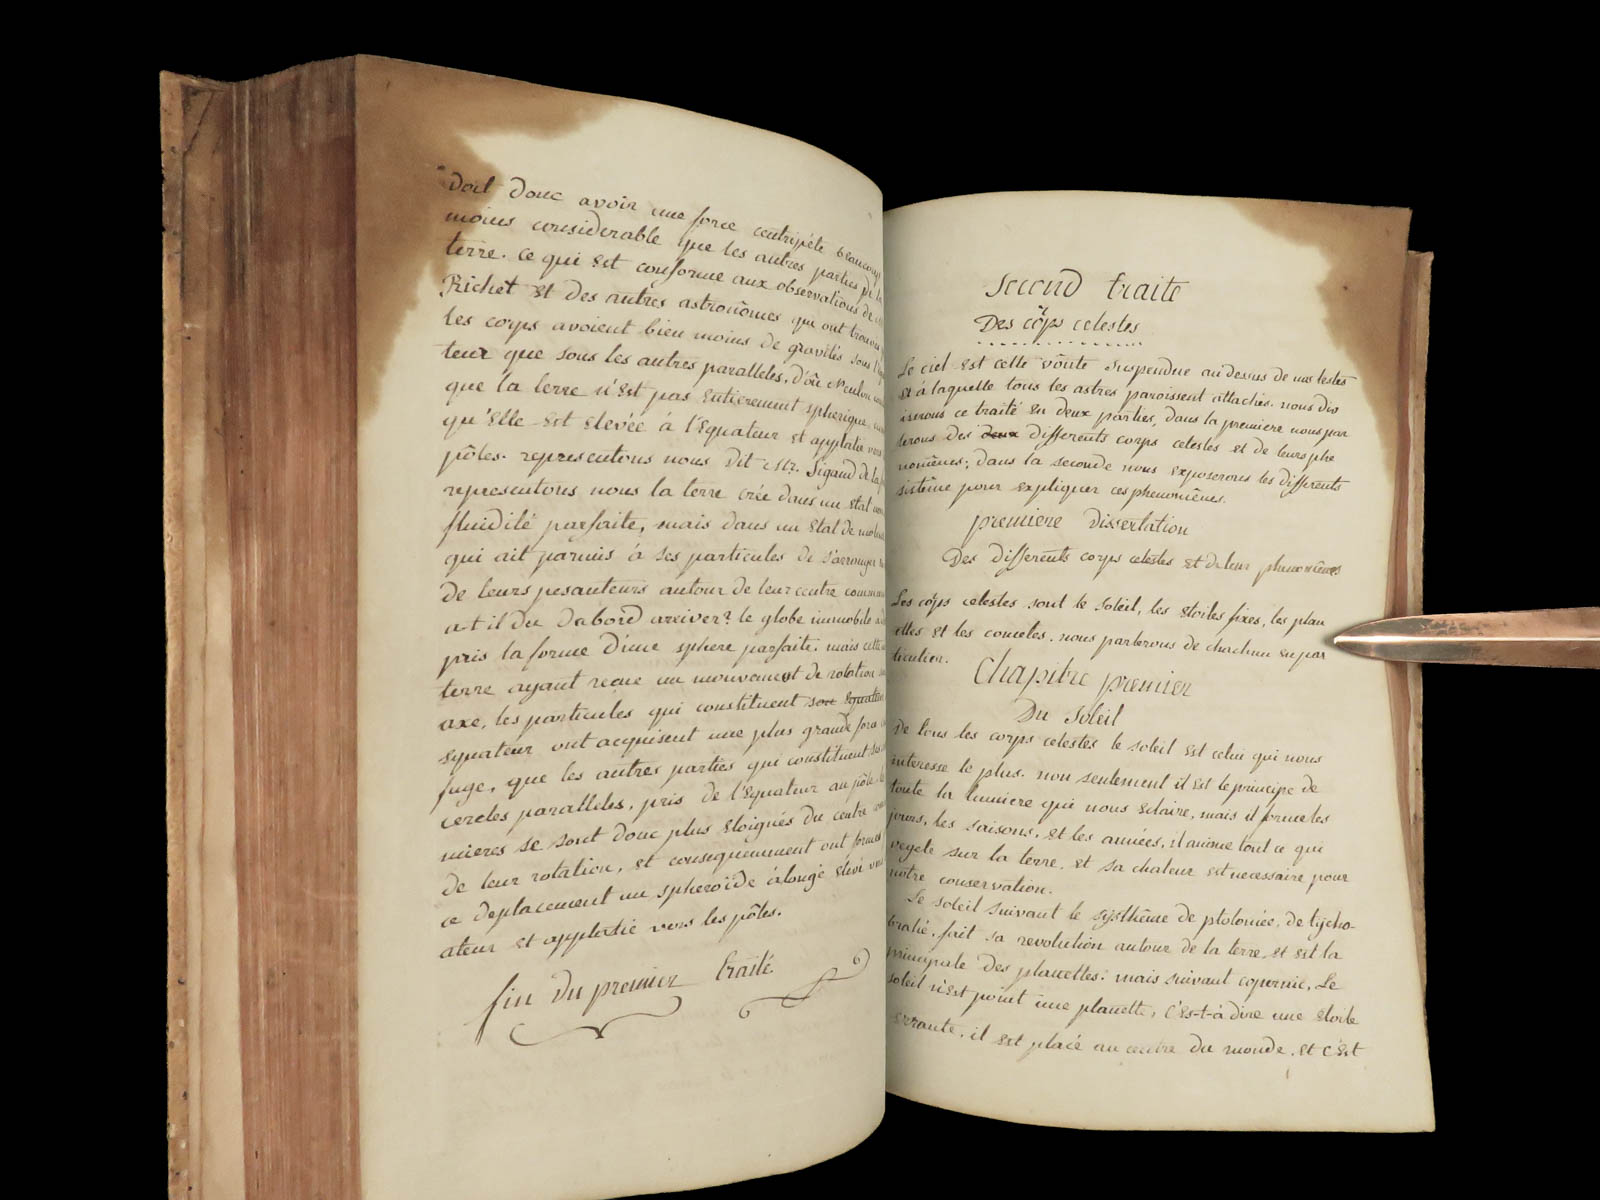 doit donc avoir une force centripéte beaucoup
moins considerable que les autres parties de la
terre. ce qui est conforme aux observations de
Richet et des autres astronômes qui ont trouvé
les corps avoient bien moins de gravités sous l'equ
teur que sous les autres paralleles, d'oû Neuton
que la terre n'est pas entierement spherique,
qu'elle est elevée à l'equateur et applatie vers
pôles. representons nous dit Mr. Sigaud de la
representons nous la terre crée dans un etat
fluidité parfaite, mais dans un etat de
qui ait permis à ses particules de s'arranger
de leurs pesanteurs autour de leur centre commun
a-t-il du dabord arriver? le globe immobile a
pris la forme d'une sphere parfaite. mais cette
terre ayant recue un mouvement de rotation
axe, les particules qui constituent son equateur
equateur ont acquisent une plus grande force
fuge, que les autres parties qui constituent ses
cercles paralleles, pris de l'equateur au pôle.
mieres se sont donc plus eloignés du centre
de leur rotation, et consequemment ont formés
ce deplacement un spheroïde àlongé elévé
ateur et applatie vers les pôles.
fin du premier traité
Second traité
Des corps celestes
Le ciel est cette vôute suspendue au dessus de nos testes
et à laquelle tous les astres paroissent attachés. nous div
iserons ce traité en deux parties, dans la premiere nous par
lerons des deux differents corps celestes et de leurs phe
nomênes; dans la seconde nous exposerons les differents
sistême pour expliquer ces phenomênes.
premiere dissertation
Des differents corps celestes et de leur phenomênes
Les corps celestes sont le soleil, les etoiles fixes, les plan
ettes et les cometes. nous parlerons de chachun en par
ticulier.
Chapitre premier
Du Soleil
De tous les corps celestes le soleil est celui qui nous
interesse le plus. non seulement il est le principe de
toute la lumiere qui nous eclaire, mais il forme les
jours, les saisons, et les années, il anime tout ce qui
vegete sur la terre, et sa chaleur est necessaire pour
nôtre conservation.
Le soleil suivant le systhême de ptolomée, de tycho-
brahé, fait sa revolution autour de la terre, et est la
principale des planettes: mais suivant copernic, Le
soleil n'est point une planette, c'es-t-à dire une etoile
errante, il est placé au centre du monde, et c'est